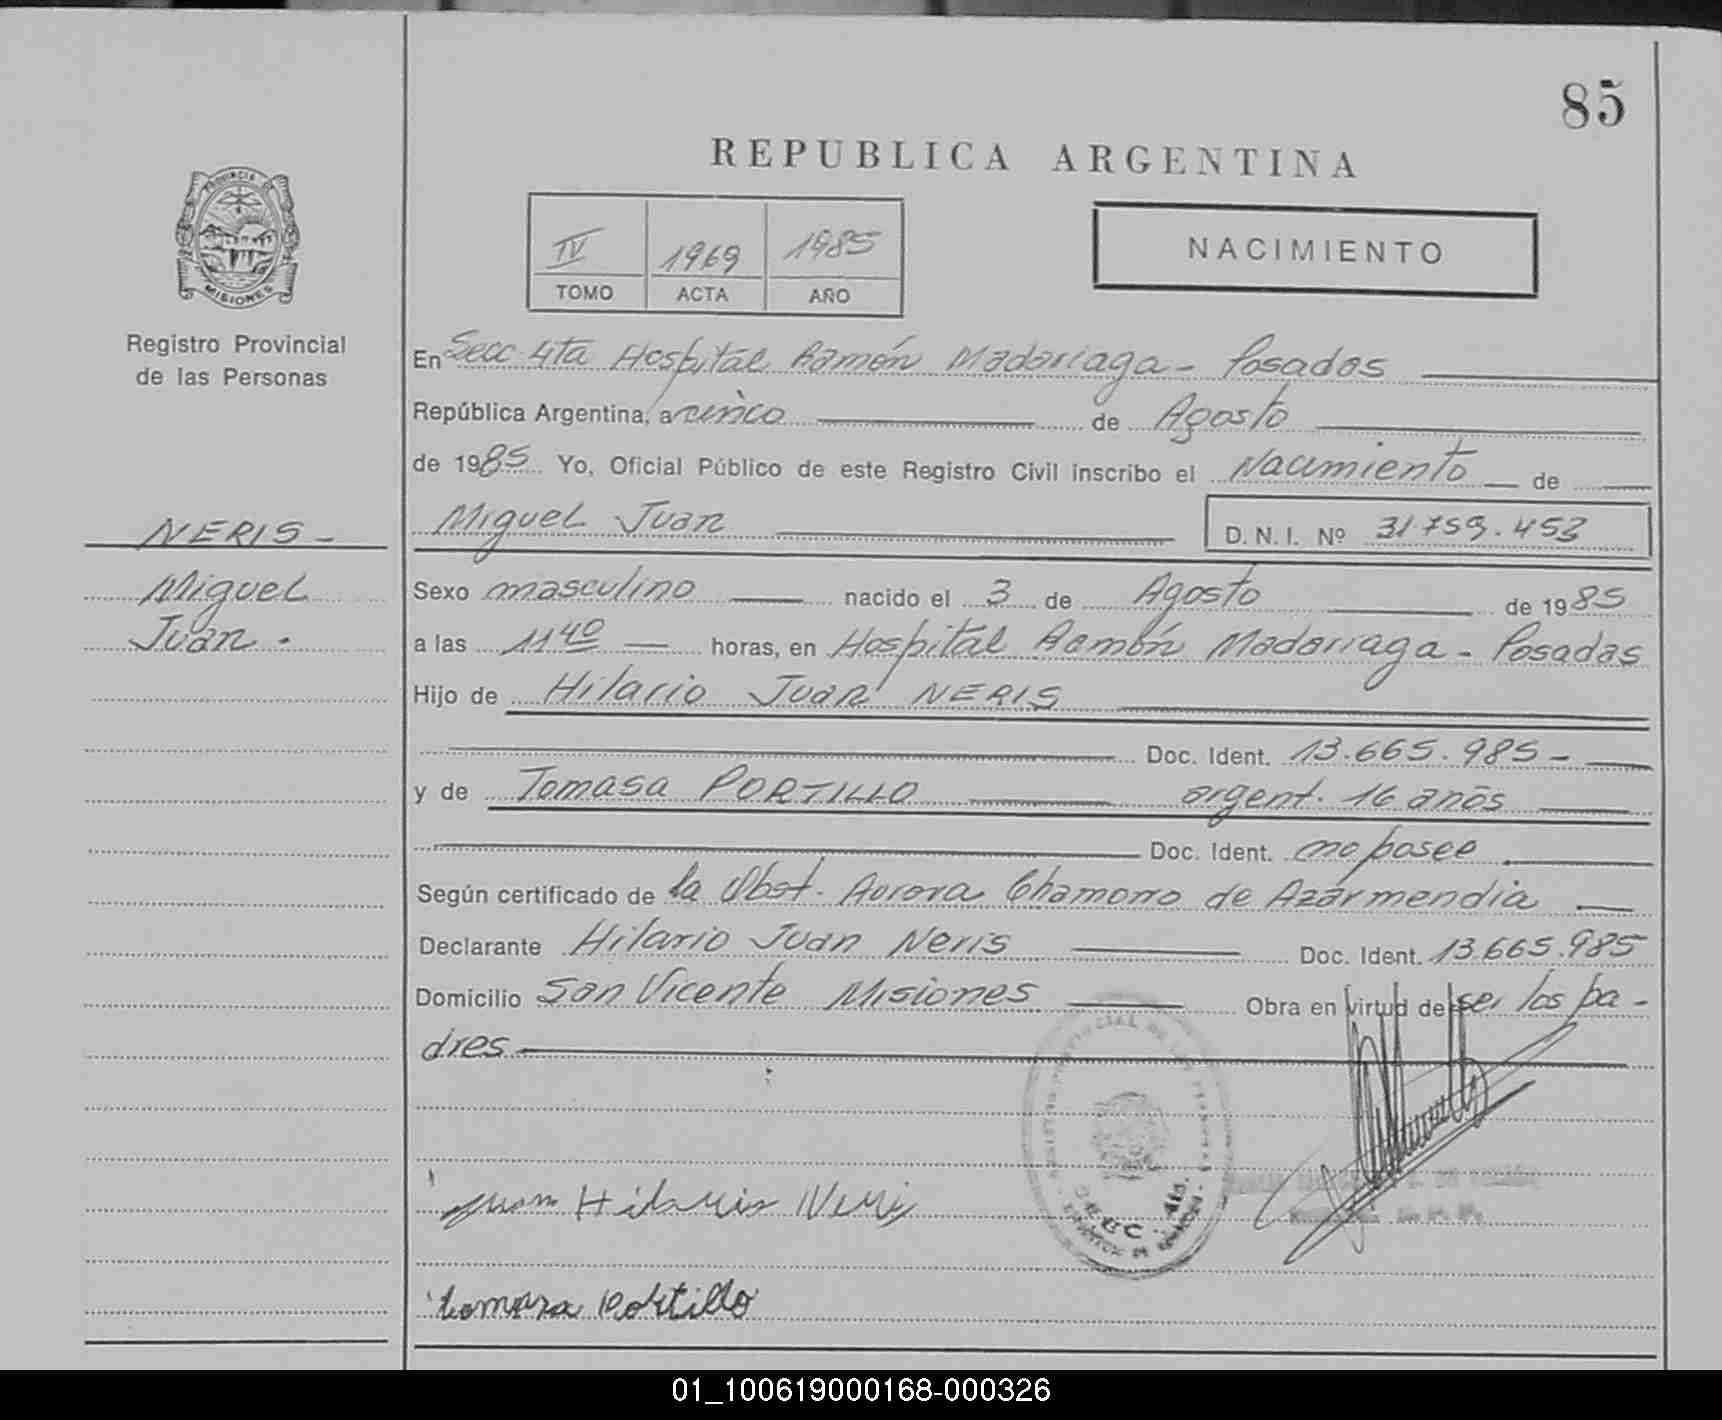 85
REPUBLICA ARGENTINA
PROVINCIA DE
MISIONES
Registro Provincial
de las Personas
IV 1969 1985
TOMO ACTA AÑO
NACIMIENTO
En Secc. 4ta Hospital Ramón Madariaga - Posadas
República Argentina, a cinco de Agosto
de 1985 Yo, Oficial Público de este Registro Civil inscribo el Nacimiento de
NERIS -
Miguel Juan D.N.I. Nº 31.759.453
Miguel
Sexo masculino nacido el 3 de Agosto de 1985
Juan.
a las 11 40 horas, en Hospital Ramón Madariaga - Posadas
Hijo de Hilario Juan NERIS
Doc. Ident. 13.665.985 -
y de Tomasa PORTILLO argent. 16 años
Doc. Ident. no posee
Según certificado de la Obst. Aurora Chamorro de Azarmendia
Declarante Hilario Juan Neris Doc. Ident. 13.665.985
Domicilio San Vicente Misiones Obra en virtud de ser los pa-
dres
REGISTRO PROVINCIAL DE LAS PERSONAS
Juan Hilario Neris
tomasa Portillo
01_100619000168-000326